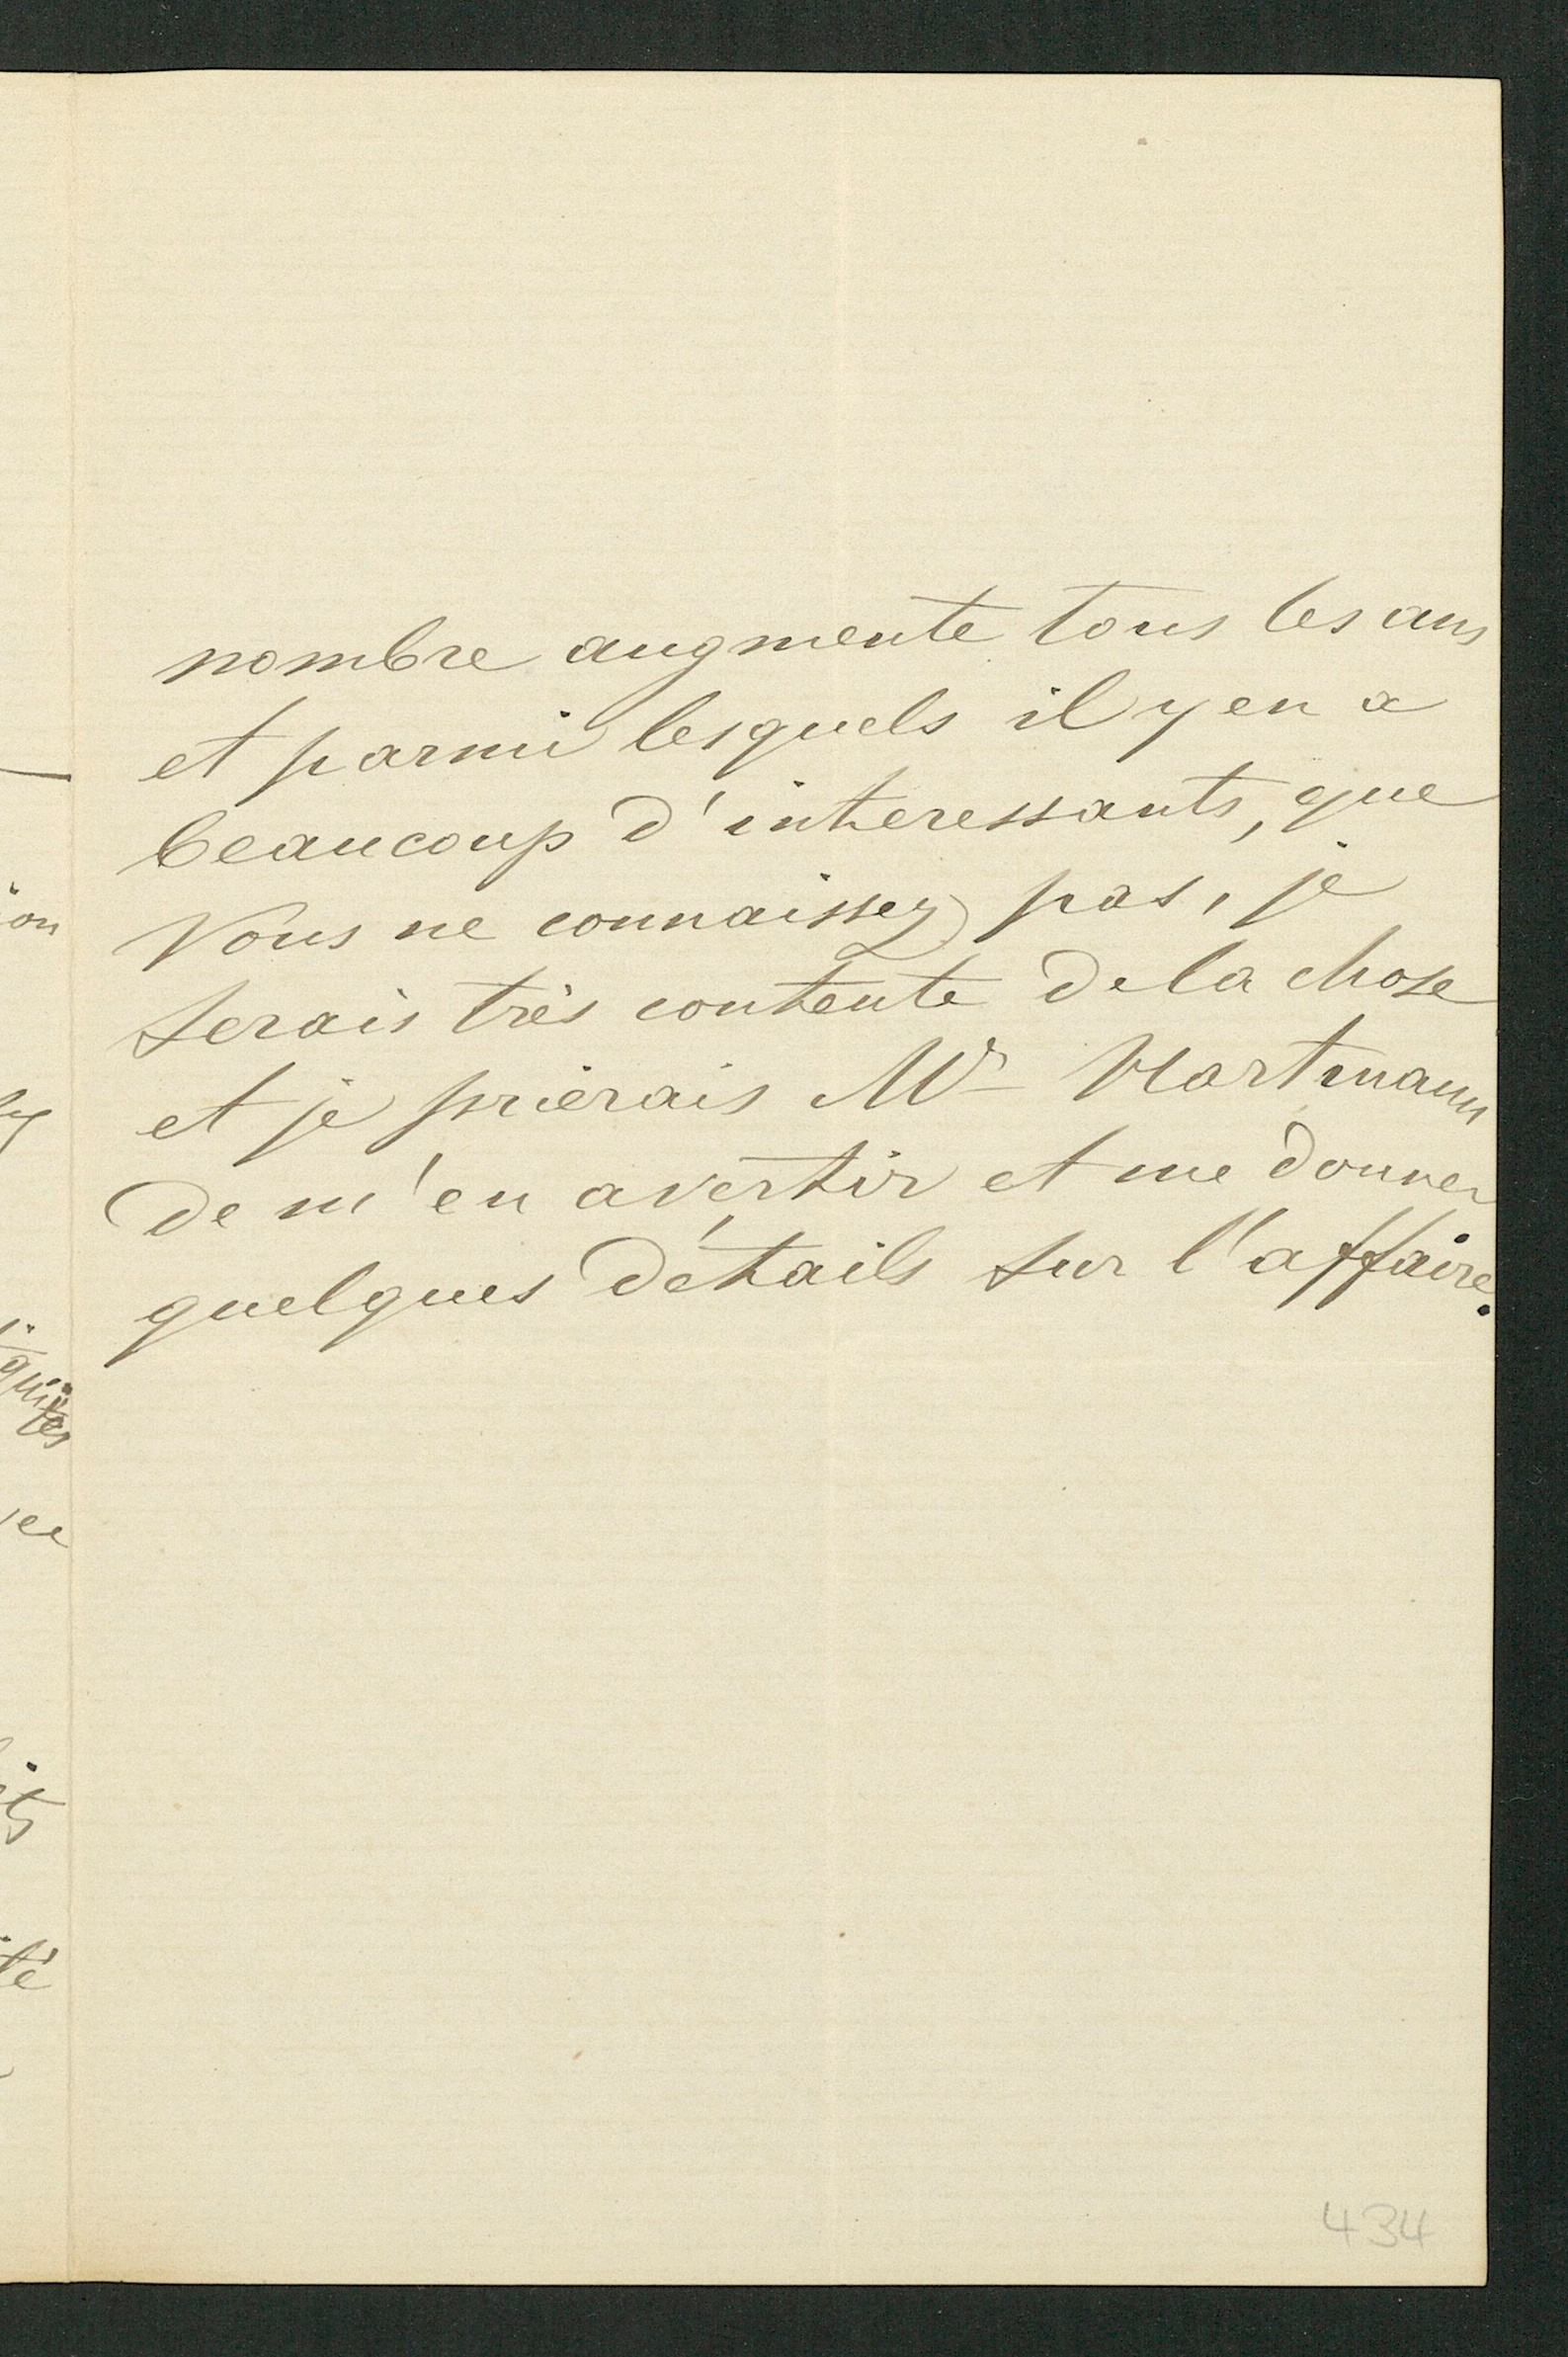 nombre augmente tous les ans
et parmi lesquels il y en a
beaucoup d'interessants, que
Vous ne connaissez pas, je
serais très contente de la chose
et je prierais Mr Hartmann
de m'en avertir et me donner
quelques détails sur l'affaire.
434